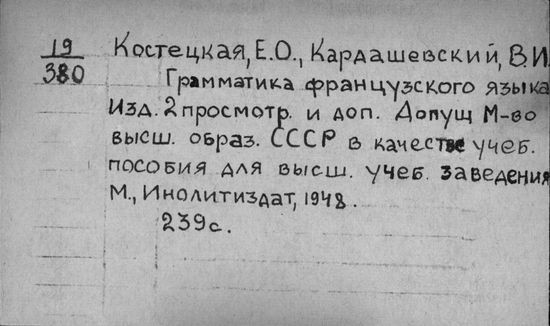 19
380
Костецкая, Е.О., Кардашевский, В.И.
Грамматика французского языка
Изд. 2 просмотр. и доп. Допущ М-во
высш. образ. СССР в качестве учеб.
пособия для высш. учеб. заведения
М., Инолитиздат, 1948.
239с.